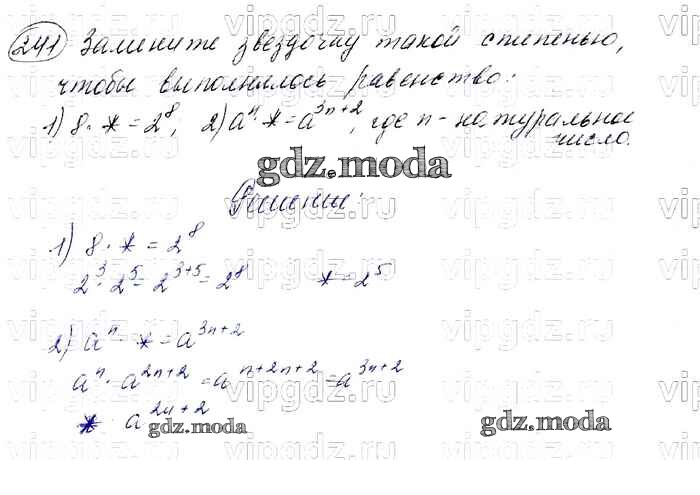 241 Замените звёздочку такой степенью,
чтобы выполнялось равенство:
1) 8 · * = 2⁸, 2) aⁿ · * = a³ⁿ⁺², где n - натуральное
число.
gdz.moda
Решение:
1) 8 · * = 2⁸
2³ · 2⁵ = 2³⁺⁵ = 2⁸ * = 2⁵
2) aⁿ · * = a³ⁿ⁺²
aⁿ · a²ⁿ⁺² = aⁿ⁺²ⁿ⁺² = a³ⁿ⁺²
* a²ⁿ⁺²
gdz.moda gdz.moda
vipgdz.ru